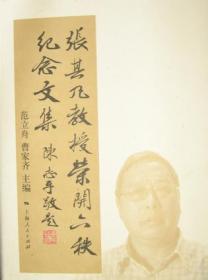 張其凡教授榮開六秩
紀念文集
陳志平敬題
范立舟 曹家齐 主编
上海人民出版社